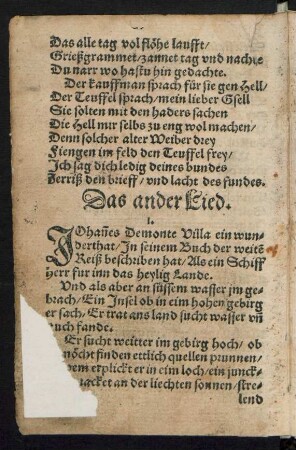 Das alle tag vol flöhe laufft/
Grießgrammet/zannet tag vnd nacht
Du narr wo hastu hin gedachte.
Der kauffman sprach für sie gen Hell/
Der Teuffel sprach/mein lieber Gsell
Sie solten mit den haders sachen
Die Hell mir selbs zu eng wol machen/
Denn solcher alter Weiber drey
Fiengen im feld den Teuffel frey/
Ich sag dich ledig deines bundes
Zerriß den brieff/vnd lacht des fundes.
Das ander Lied.
1.
JOhañes Demonte Villa ein wun-
derthat/In seinem Buch der weitẽ
Reiß beschriben hat/Als ein Schiff
herr fur inn das heylig Lande.
Vnd als aber an süssem wasser jm ge-
brach/Ein Insel ob in eim hohen gebirg
er sach/Er trat ans land sucht wasser vñ
auch fande.
Er sucht weitter im gebirg hoch/ob
möcht finden ettlich quellen prunnen/
erplickt er in eim loch/ein junck-
nacket an der liechten sonnen/stre-
lend